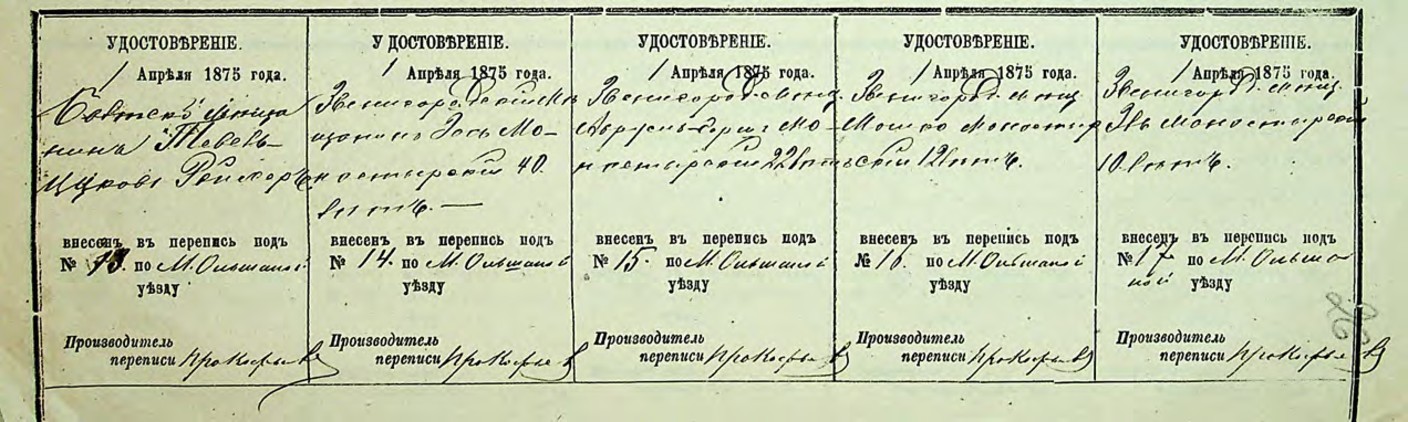 УДОСТОВѢРЕНІЕ.
1 Апрѣля 1875 года.
Тевель
внесенъ въ перепись подъ
№ 13. по М. Ольшаной
уѣзду
Производитель
переписи Прокофьев
УДОСТОВѢРЕНІЕ.
1 Апрѣля 1875 года.
Звенигородскій мѣ
щанинъ Іось Мо
настырскій 40.
лѣтъ. —
внесенъ въ перепись подъ
№ 14. по М. Ольшаной
уѣзду
Производитель
переписи Прокофьев
УДОСТОВѢРЕНІЕ.
1 Апрѣля 1875 года.
Звенигород. мѣщ.
Мо-
настырскій 22 лѣтъ
внесенъ въ перепись подъ
№ 15. по М. Ольшаной
уѣзду
Производитель
переписи Прокофьев
УДОСТОВѢРЕНІЕ.
1 Апрѣля 1875 года.
Звенигород. мѣщ
Мошко Монастыр
скій 12 лѣтъ.
внесенъ въ перепись подъ
№ 16. по М. Ольшаной
уѣзду
Производитель
переписи Прокофьев
УДОСТОВѢРЕНІЕ.
1 Апрѣля 1875 года.
Звенигород. мѣщ.
Монастырскій
10 лѣтъ.
внесенъ въ перепись подъ
№ 17. по М. Ольша
ной уѣзду
Производитель
переписи Прокофьев